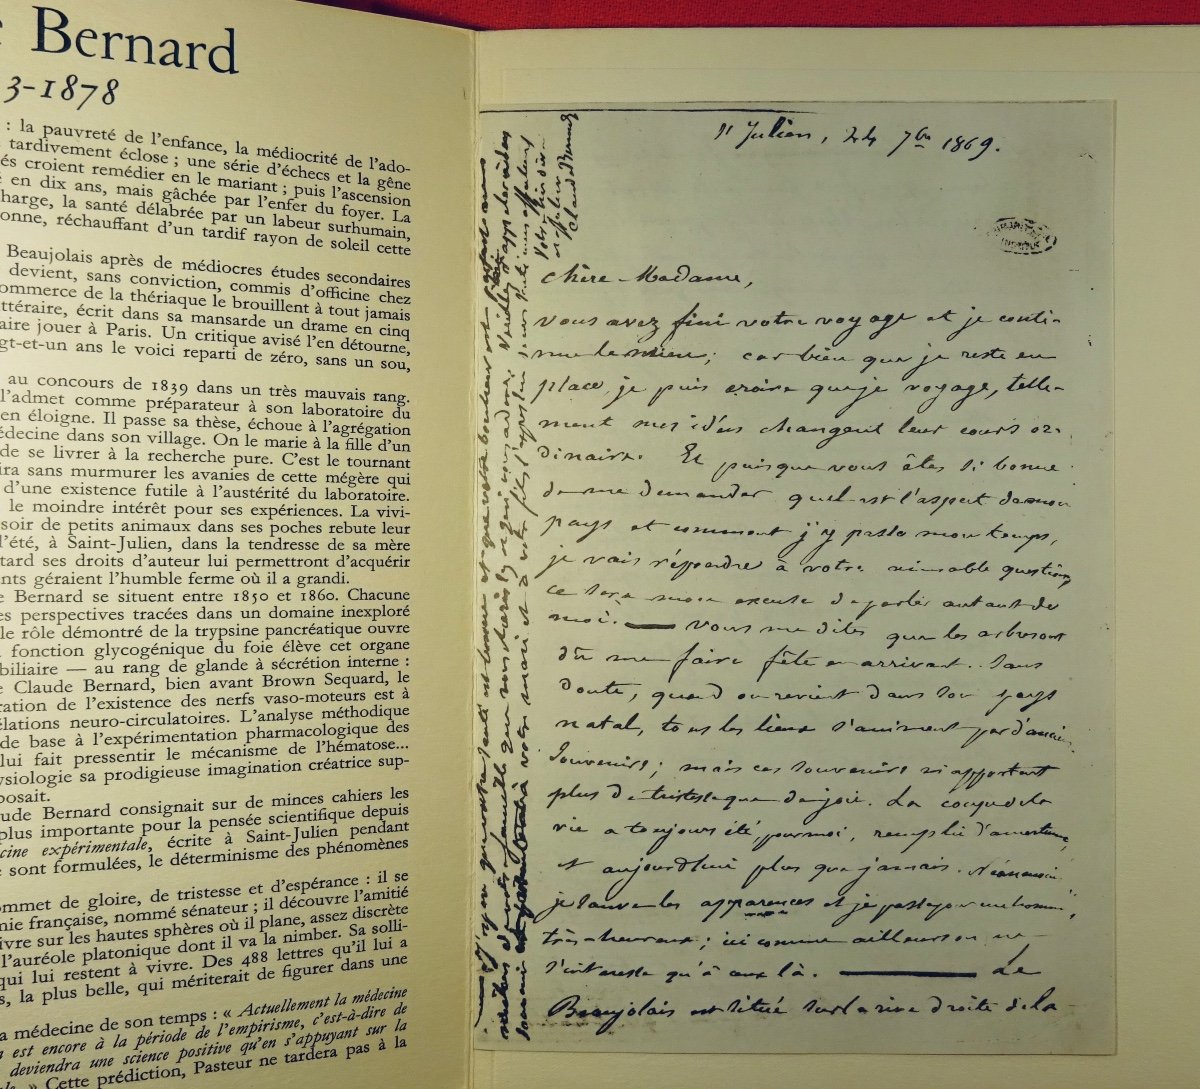 Bernard
3-1878
: la pauvreté de l'enfance, la médiocrité de l'ado-
tardivement éclose ; une série d'échecs et la gêne
és croient remédier en le mariant ; puis l'ascension
en dix ans, mais gâchée par l'enfer du foyer. La
harge, la santé délabrée par un labeur surhumain,
onne, réchauffant d'un tardif rayon de soleil cette
Beaujolais après de médiocres études secondaires
devient, sans conviction, commis d'officine chez
ommerce de la thériaque le brouillent à tout jamais
ttéraire, écrit dans sa mansarde un drame en cinq
aire jouer à Paris. Un critique avisé l'en détourne,
gt-et-un ans le voici reparti de zéro, sans un sou,
au concours de 1839 dans un très mauvais rang.
l'admet comme préparateur à son laboratoire du
en éloigne. Il passe sa thèse, échoue à l'agrégation
édecine dans son village. On le marie à la fille d'un
de se livrer à la recherche pure. C'est le tournant
ira sans murmurer les avanies de cette mégère qui
d'une existence futile à l'austérité du laboratoire.
le moindre intérêt pour ses expériences. La vivi-
soir de petits animaux dans ses poches rebute leur
l'été, à Saint-Julien, dans la tendresse de sa mère
tard ses droits d'auteur lui permettront d'acquérir
nts géraient l'humble ferme où il a grandi.
e Bernard se situent entre 1850 et 1860. Chacune
es perspectives tracées dans un domaine inexploré
le rôle démontré de la trypsine pancréatique ouvre
fonction glycogénique du foie élève cet organe
biliaire — au rang de glande à sécrétion interne :
e Claude Bernard, bien avant Brown Sequard, le
ration de l'existence des nerfs vaso-moteurs est à
élations neuro-circulatoires. L'analyse méthodique
de base à l'expérimentation pharmacologique des
lui fait pressentir le mécanisme de l'hématose...
ysiologie sa prodigieuse imagination créatrice sup-
posait.
ude Bernard consignait sur de minces cahiers les
plus importante pour la pensée scientifique depuis
cine expérimentale, écrite à Saint-Julien pendant
sont formulées, le déterminisme des phénomènes
ommet de gloire, de tristesse et d'espérance : il se
nie française, nommé sénateur ; il découvre l'amitié
ivre sur les hautes sphères où il plane, assez discrète
l'auréole platonique dont il va la nimber. Sa solli-
qui lui restent à vivre. Des 488 lettres qu'il lui a
s, la plus belle, qui mériterait de figurer dans une
a médecine de son temps : « Actuellement la médecine
est encore à la période de l'empirisme, c'est-à-dire de
deviendra une science positive qu'en s'appuyant sur la
» Cette prédiction, Pasteur ne tardera pas à la
St Julien, 24 7bre 1869.
Chère Madame,
vous avez fini votre voyage et je conti-
nue le mien ; car bien que je reste en
place, je puis croire que je voyage, telle-
ment mes idées changent leur cours or-
dinaire. Et puisque vous êtes si bonne
de me demander quel est l'aspect de mon
pays et comment j'y passe mon temps,
je vais répondre à votre aimable question,
ce sera mon excuse de parler autant de
moi. — Vous me dites que les arbres ont
dû me faire fête en arrivant. Sans
doute, quand on revient dans son pays
natal, tous les lieux s'animent par d'anciens
souvenirs ; mais ces souvenirs m'apportent
plus de tristesse que de joie. La coupe de la
vie a toujours été, pour moi, remplie d'amertume,
et aujourd'hui plus que jamais. Néanmoins
je sauve les apparences et je passe pour un homme
très-heureux ; ici comme ailleurs on ne
s'intéresse qu'à ceux là. — Le
Beaujolais est situé sur la rive droite de la
que votre santé est bonne et que votre bonheur est
de votre famille que vous chérissez et qui vous adore. Veuillez
à votre mari et à votre fils l'expression de mes sentiments affectueux
Votre bien dévoué
Claude Bernard